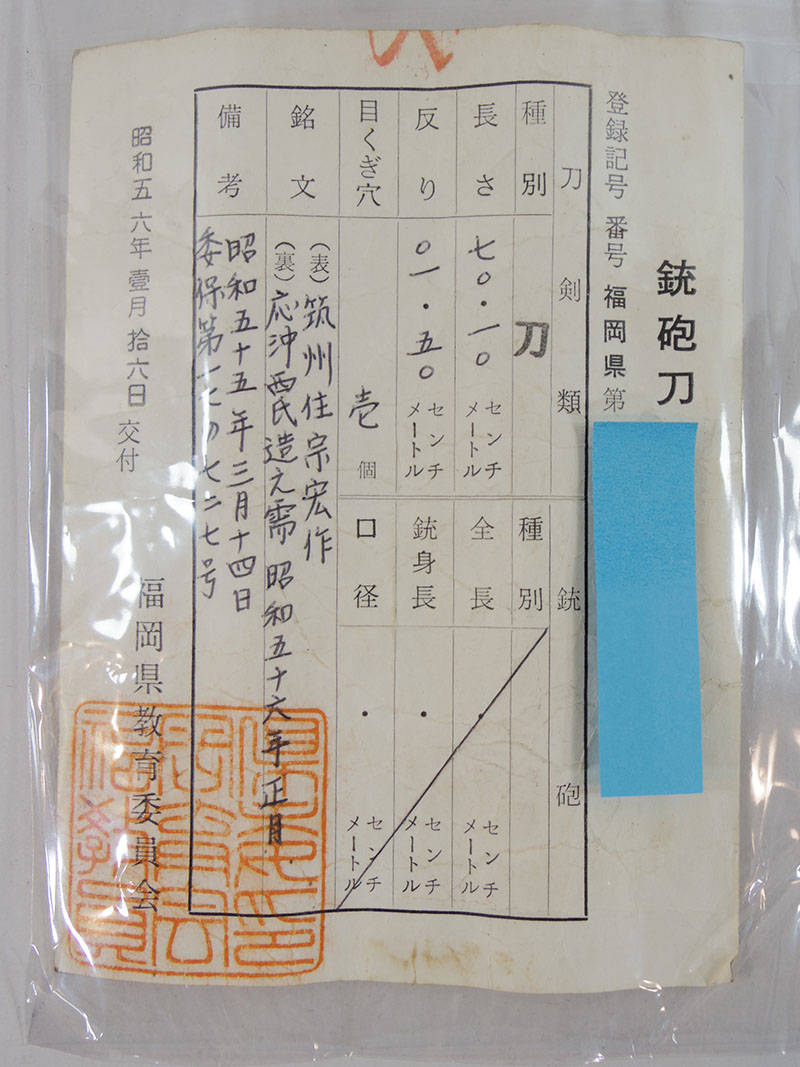 銃砲刀
登録記号番号 福岡県 第
刀剣類 銃砲
種別 刀 種別
長さ 七〇・一〇 センチメートル 全長 ・ センチメートル
反り 〇一・五〇 センチメートル 銃身長 ・ センチメートル
目くぎ穴 壱 個 口径 ・ センチメートル
銘文 (表)筑州住宗宏作
(裏)応沖西氏造之需 昭和五十六年正月
備考 昭和五十五年三月十四日
委保第一七の七二七号
昭和五六年壹月拾六日交付
福岡県教育委員会